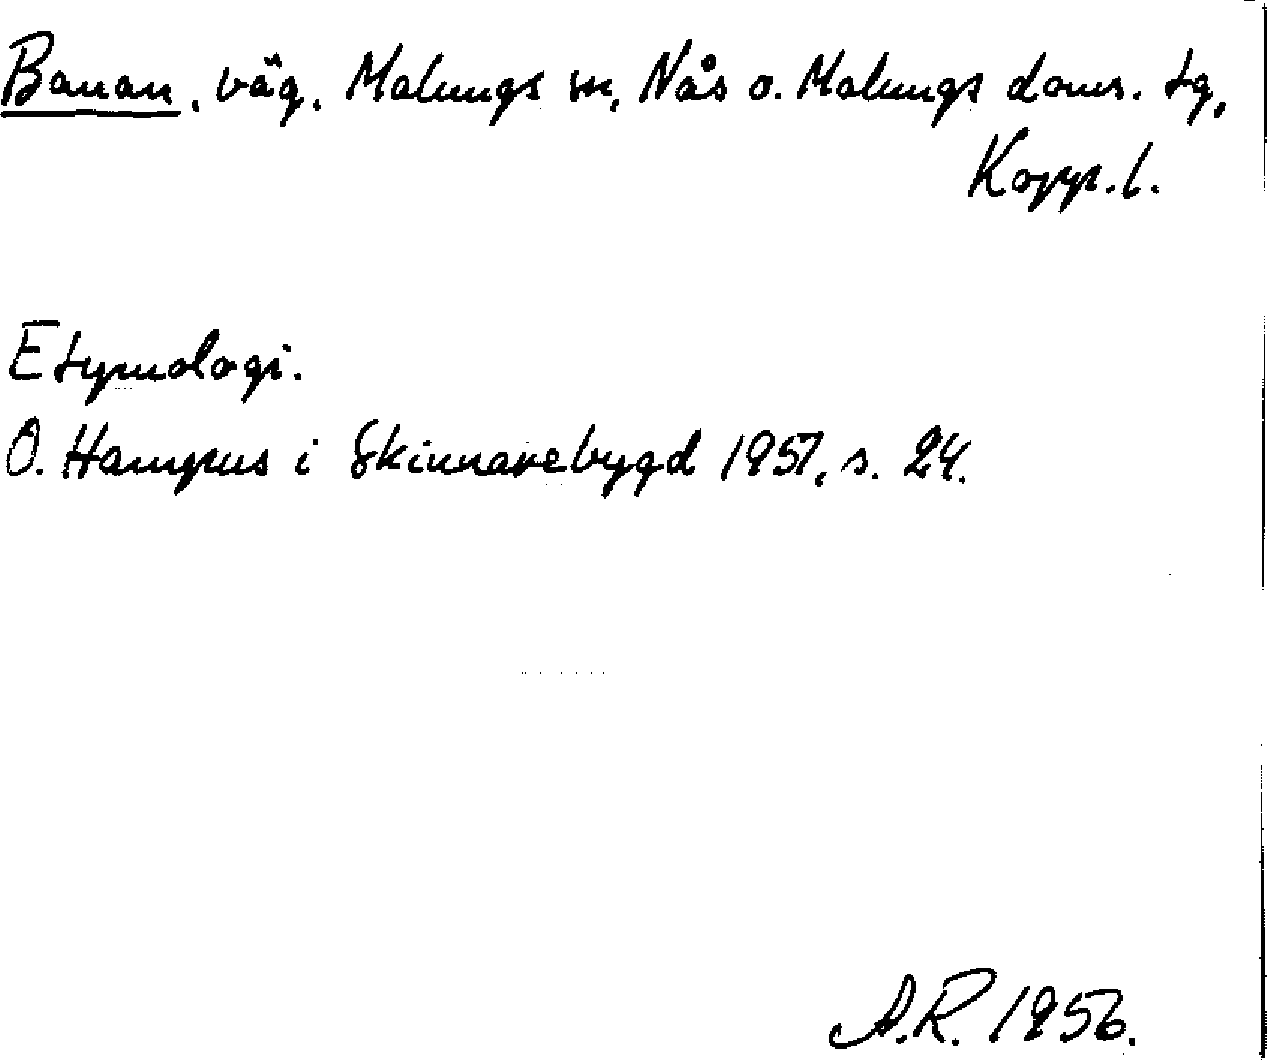 Banan, väg, Malungs sn, Nås o. Malungs doms. tg,
Kopp. l.
Etymologi.
O. Hampus i Skinnarebygd 1951, s. 24.
A.R. 1956.